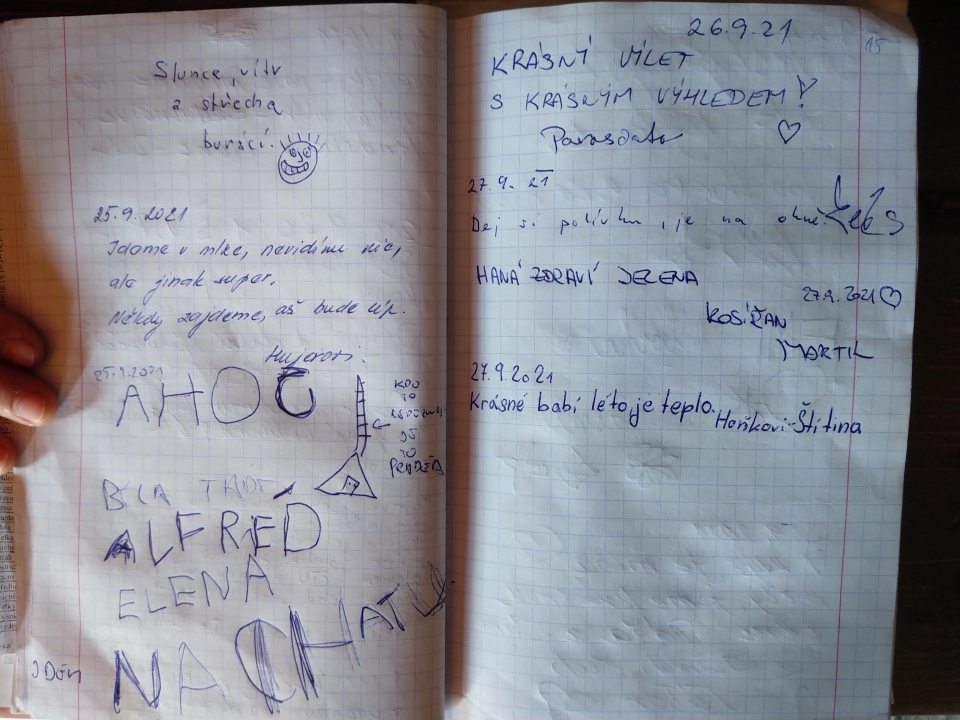 Slunce, vítr
a střecha
burácí.
25.9.2021
Jdeme v mlze, nevidíme nic,
ale jinak super.
Někdy zajdeme, až bude líp.
Hujerovi.
25.9.2021
AHOJ
KDO
TO
JE
TO
PRADĚDA
BYLA TADY
ALFRED
ELENA
NA CHATU
26.9.21
15
KRÁSNÝ VÍLET
S KRÁSNÝM VÝHLEDEM!
27.9. 21
Dej si polívku, je na okně.
HANÁ ZDRAVÍ JELENA
27.9.2021
KOSÍŘAN
MARTIN
27.9.2021
Krásné babí léto, je teplo.
Hoňkovi-Štítina